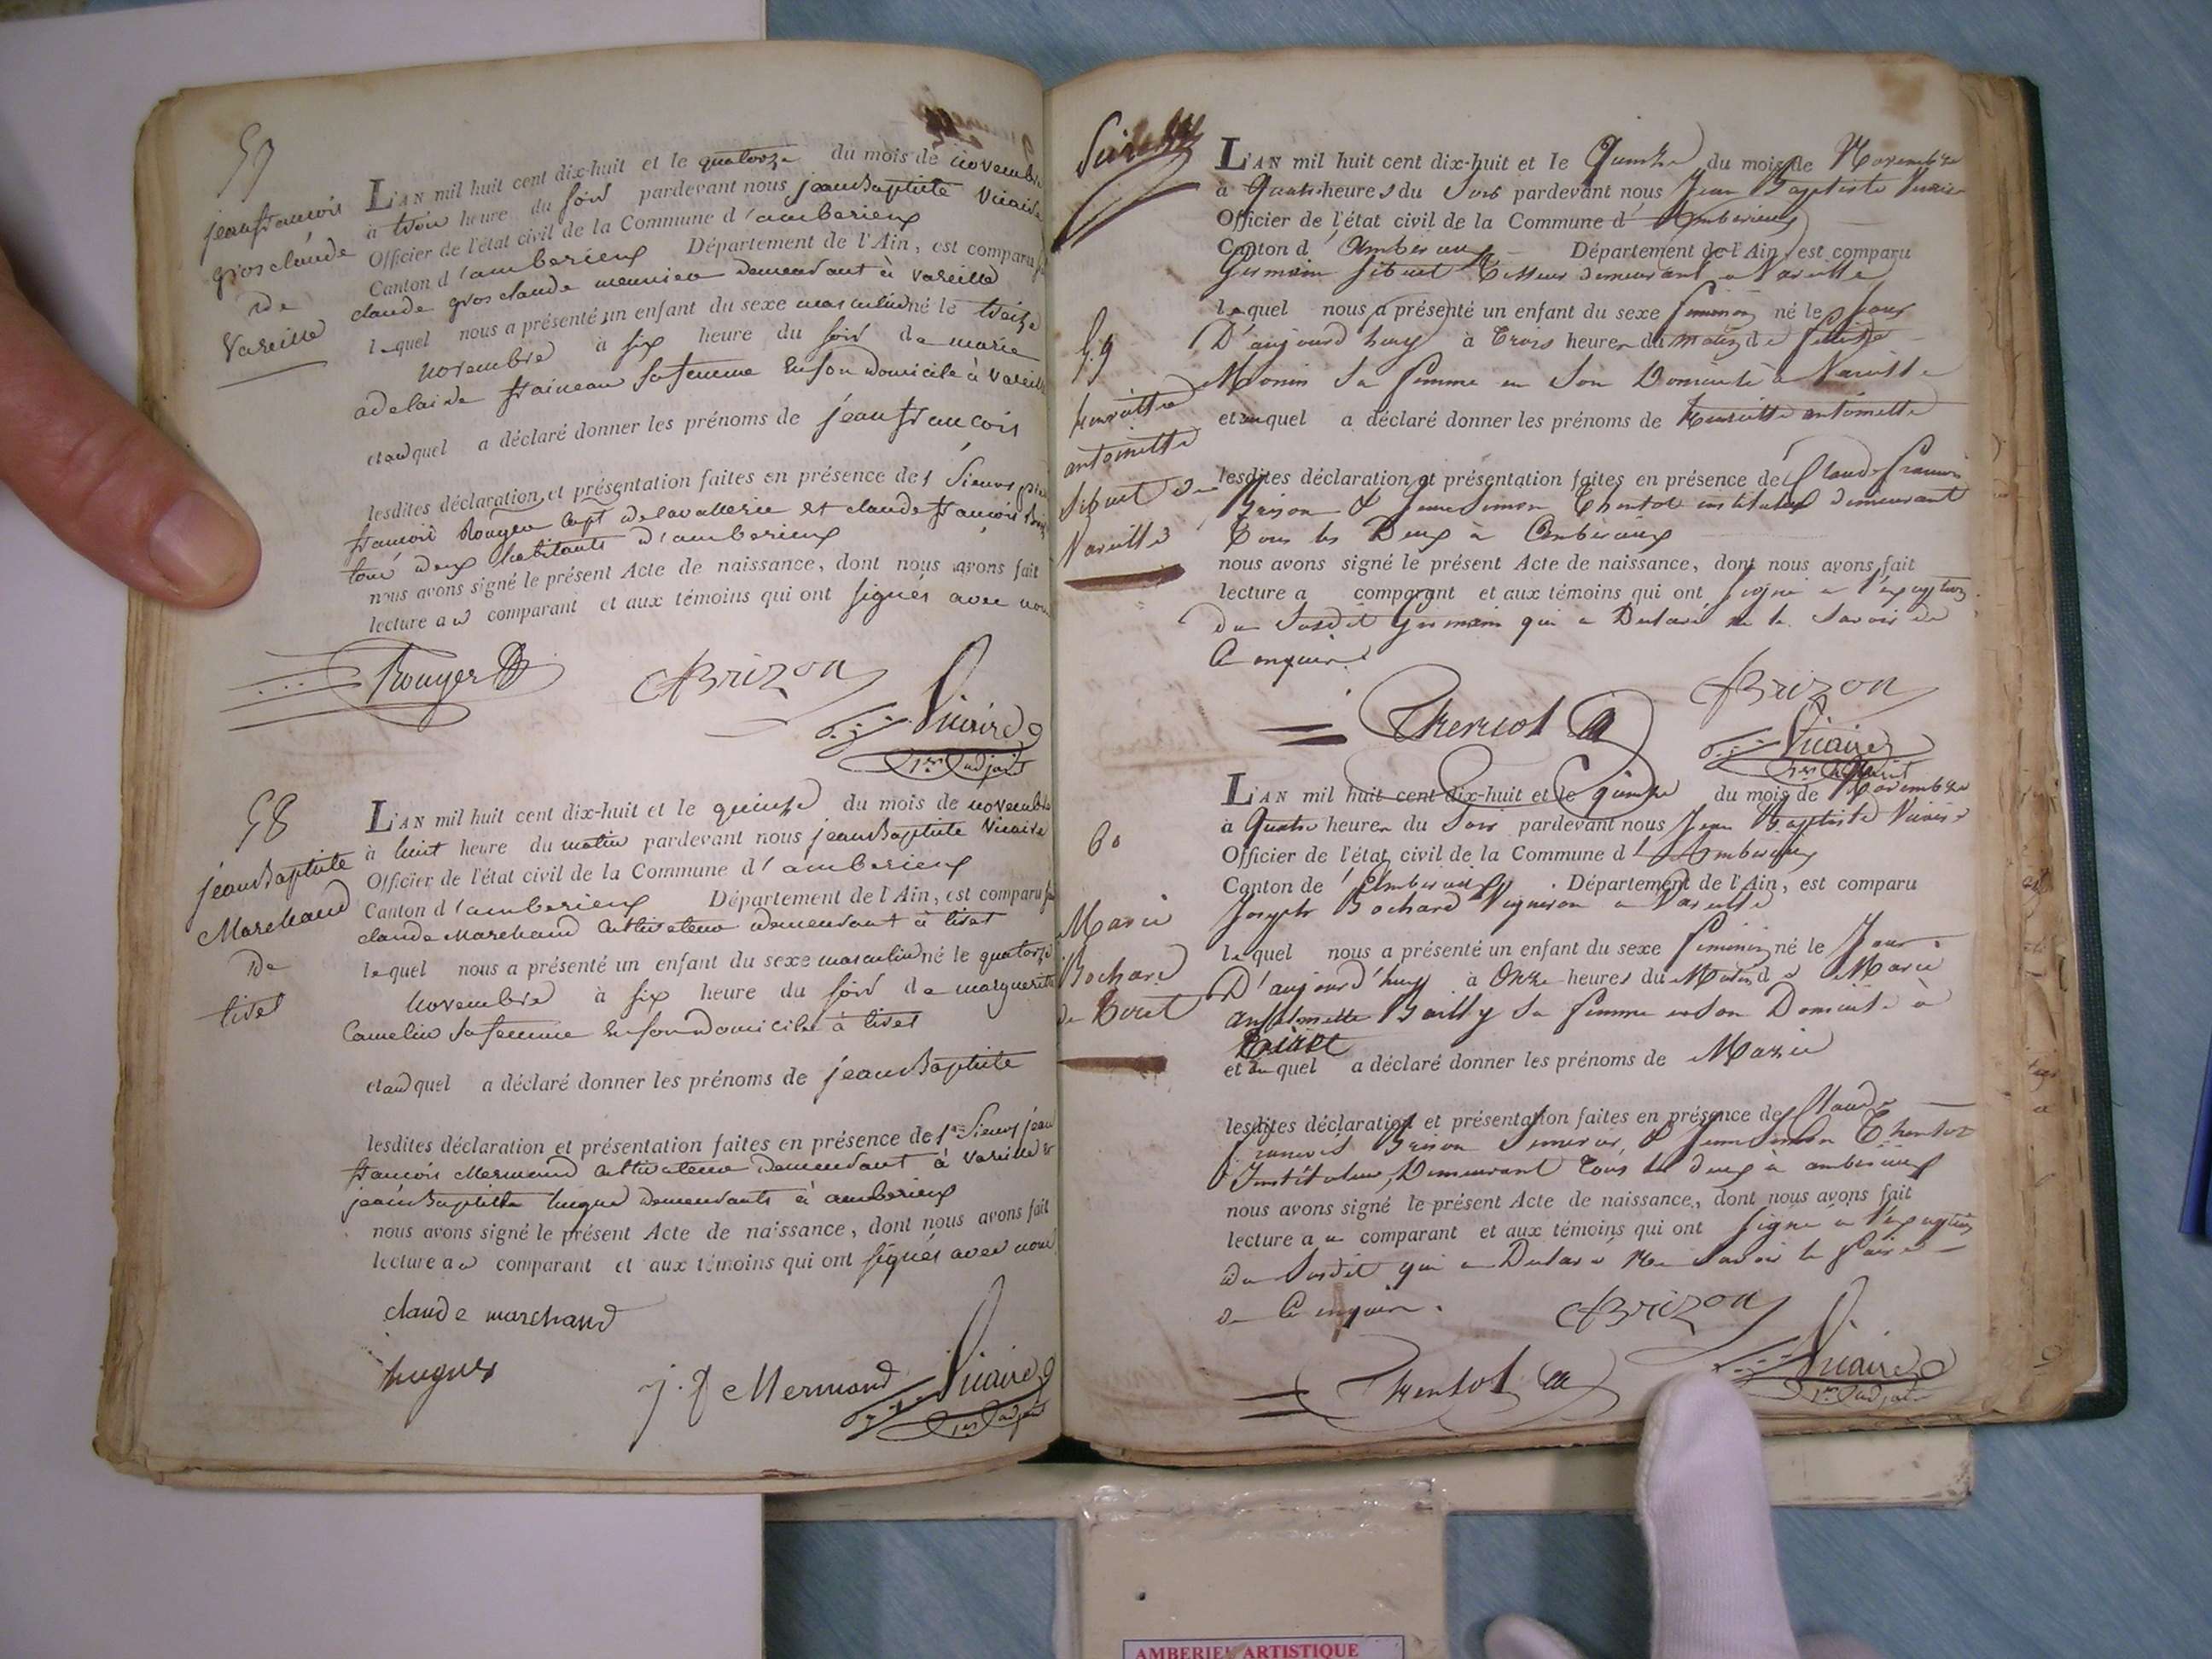 57
jean francois
gros claude
de
Vareille
L'AN mil huit cent dix-huit et le quatorze du mois de novembre
à trois heure du soir pardevant nous jean Baptiste Vicaire
Officier de l'état civil de la Commune d'amberieux
Canton d'amberieux Département de l'Ain, est comparu
claude gros claude meunier demeurant à vareille
lequel nous a présenté un enfant du sexe masculin né le treize
novembre à six heure du soir de marie
adelaide fraineau sa femme en son domicile à vareille
et auquel a déclaré donner les prénoms de jean francois
lesdites déclaration et présentation faites en présence des sieurs
francois Rouyer capt de cavallerie et claude francois
tous deux habitants d'amberieux
nous avons signé le présent Acte de naissance, dont nous avons fait
lecture au comparant et aux témoins qui ont signés avec nous
Rouyer Brizon
Vicaire
1er adjoint
58
jean Baptiste
Marchand
de
tiret
L'AN mil huit cent dix-huit et le quinze du mois de novembre
à huit heure du matin pardevant nous jean Baptiste Vicaire
Officier de l'état civil de la Commune d'amberieux
Canton d'amberieux Département de l'Ain, est comparu
claude Marchand cultivateur demeurant à tiret
lequel nous a présenté un enfant du sexe masculin né le quatorze
novembre à six heure du soir de marguerite
Camelin sa femme en son domicile à tiret
et auquel a déclaré donner les prénoms de jean Baptiste
lesdites déclaration et présentation faites en présence des sieurs jean
francois Mermand cultivateur demeurant à vareille et
jean Baptiste hugue demeurants à amberieux
nous avons signé le présent Acte de naissance, dont nous avons fait
lecture au comparant et aux témoins qui ont signés avec nous
claude marchand
hugues J. f Mermand Vicaire
1er adjoint
59
henriette
antoinette
Sibuet de
Vareille
L'AN mil huit cent dix-huit et le Quinze du mois de Novembre
à Quatre heures du Soir pardevant nous Jean Baptiste Vicaire
Officier de l'état civil de la Commune d'Amberieux
Canton d'Amberieux Département de l'Ain, est comparu
Germain Sibuet Tisseur demeurant a Vareille
lequel nous a présenté un enfant du sexe feminin né le jour
D'aujourd huy à Trois heures du matin de
Monin Sa femme en Son Domicile à Vareille
et auquel a déclaré donner les prénoms de henriette antoinette
lesdites déclaration et présentation faites en présence de Claude francois
Brison & Jean Simon Thentot instituteur demeurant
Tous les Deux à Amberieux
nous avons signé le présent Acte de naissance, dont nous avons fait
lecture a comparant et aux témoins qui ont signé a l'exception
du Susdit Germain qui a Declaré ne le Savoir de
Ce enquis
Thentot Brizon
Vicaire
1er adjoint
60
Marie
Bochard
de Tiret
L'AN mil huit cent dix-huit et le quinze du mois de Novembre
à Quatre heures du Soir pardevant nous Jean Baptiste Vicaire
Officier de l'état civil de la Commune d'Amberieux
Canton de Amberieux. Département de l'Ain, est comparu
Joseph Bochard Vigneron a Vareille
lequel nous a présenté un enfant du sexe feminin né le Jour
D'aujourd'huy à Onze heures du Matin de Marie
Anthelmette Bailly Sa femme en Son Domicile à
Tiret
et auquel a déclaré donner les prénoms de Marie
lesdites déclaration et présentation faites en présence de Claude
francois Brison & Jean Simon Thentot
Instituteur, Demeurant Tous les deux à amberieux
nous avons signé le présent Acte de naissance, dont nous avons fait
lecture a u comparant et aux témoins qui ont signé a l'exception
du Susdit qui a Declaré Ne Savoir le faire
de Ce enquis.
Brizon
Thentot Vicaire
1er adjoint
AMBERIEU ARTISTIQUE